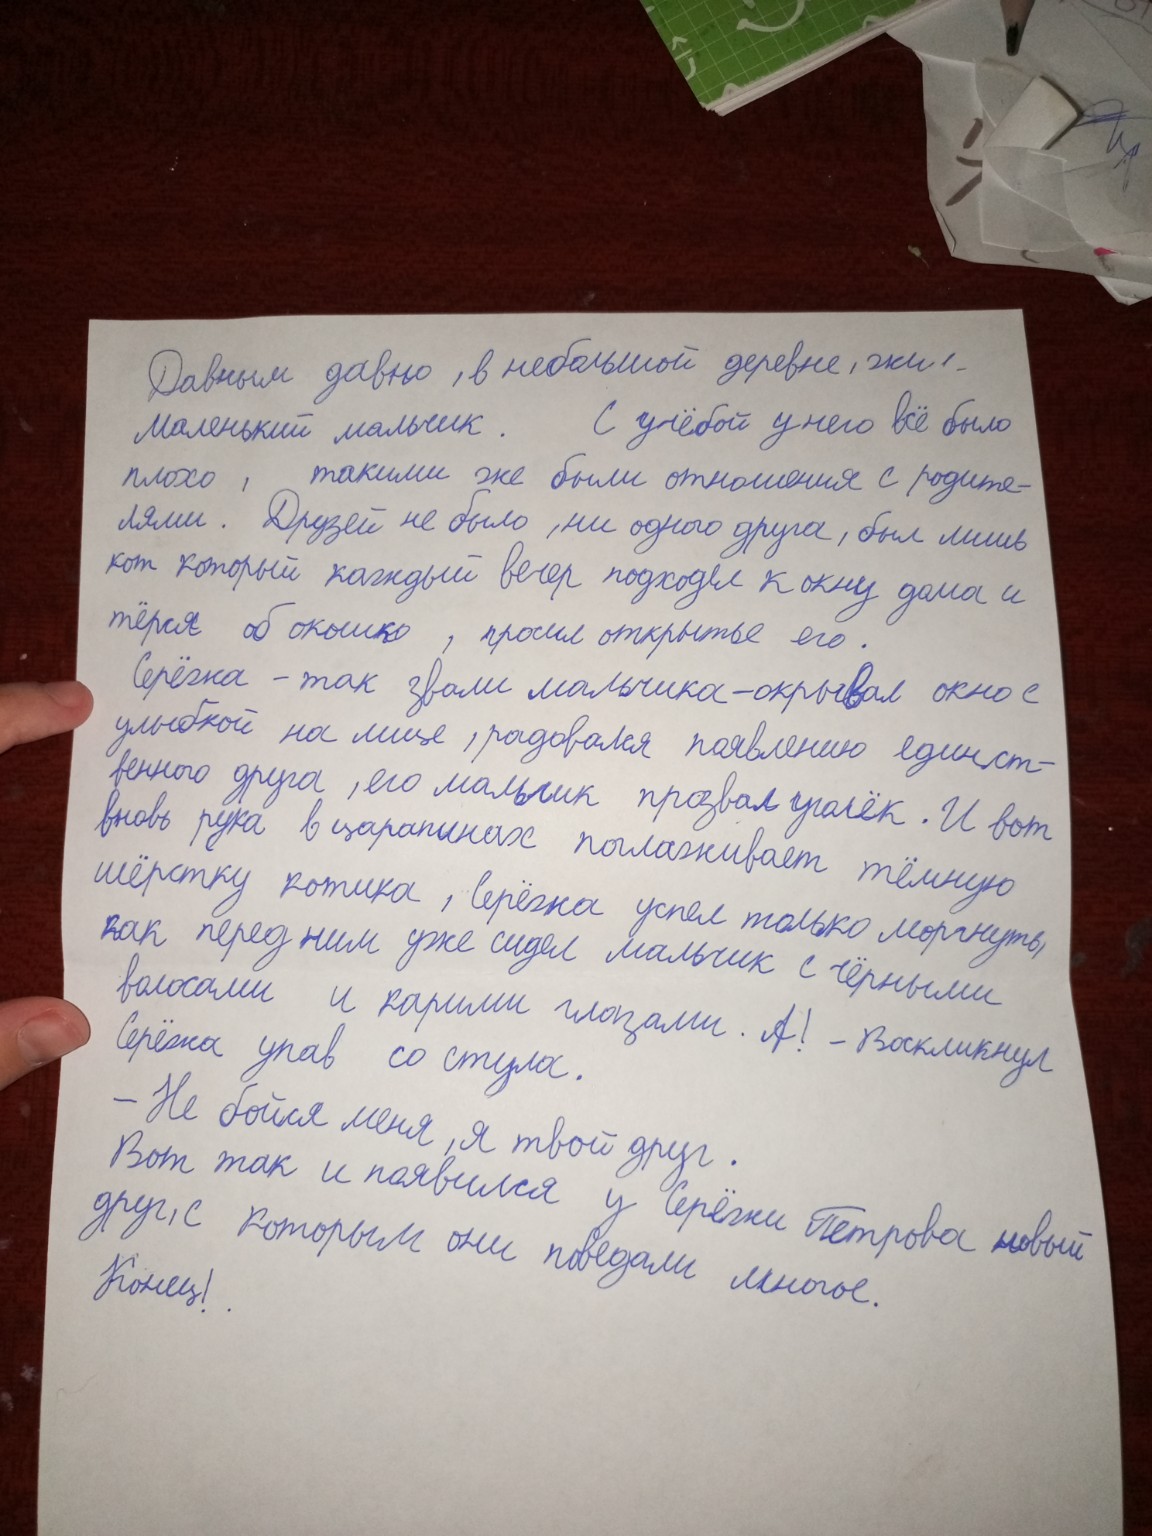 Давным давно, в небольшой деревне, жил
маленький мальчик. С учёбой у него всё было
плохо, такими же были отношения с родите-
лями. Друзей не было, ни одного друга, был лишь
кот который каждый вечер подходил к окну дома и
тёрся об окошко, просил открытье его.
Серёжка - так звали мальчика - окрывал окно с
улыбкой на лице, радовался появлению единст-
венного друга, его мальчик прозвал уголёк. И вот
вновь рука в царапинах поглаживает тёмную
шёрстку котика, Серёжка успел только моргнуть,
как перед ним уже сидел мальчик с чёрными
волосами и карими глазами. А! - Воскликнул
Серёжка упав со стула.
- Не бойся меня, я твой друг.
Вот так и появился у Серёжки Петрова новый
друг, с которым они поведали многое.
Конец!